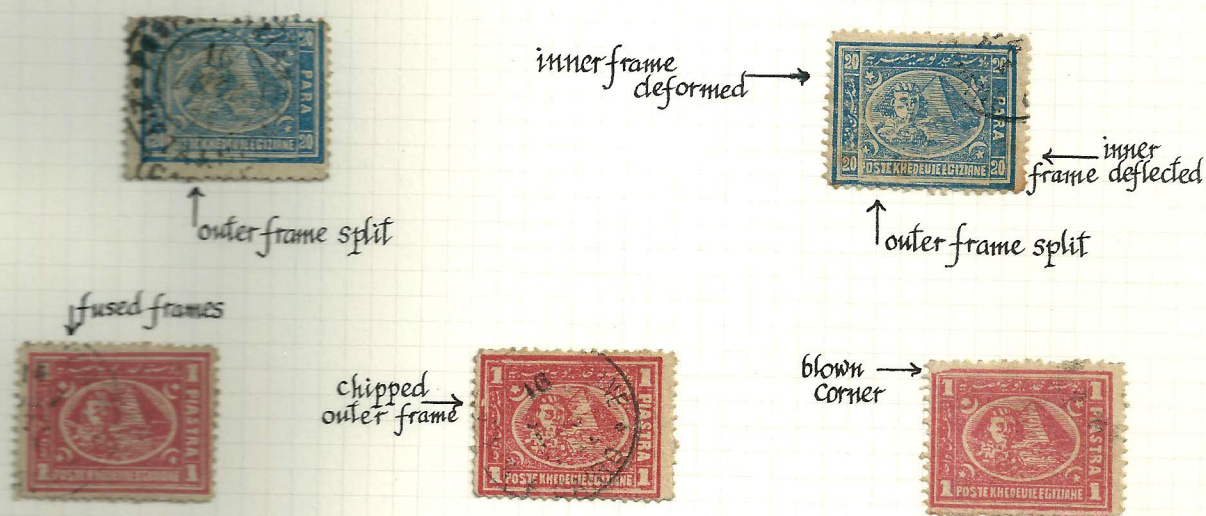 20
PARA
20
POSTE KHEDEUIE EGIZIANE
outer frame split
inner frame
deformed
20
20
PARA
20
POSTE KHEDEUIE EGIZIANE
20
inner
frame deflected
outer frame split
fused frames
1
1
POSTE KHEDEUIE EGIZIANE
1
chipped
outer frame
1
16
1
PIASTRA
1
POSTE KHEDEUIE EGIZIANE
1
blown
corner
1
1
PIASTRA
1
POSTE KHEDEUIE EGIZIANE
1